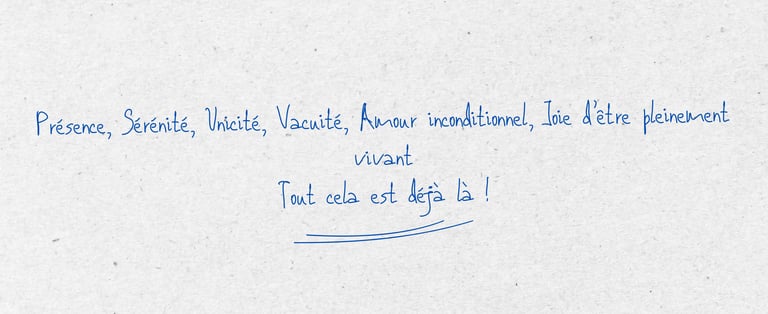 Présence, Sérénité, Unicité, Vacuité, Amour inconditionnel, Joie d'être pleinement
vivant
Tout cela est déjà là !